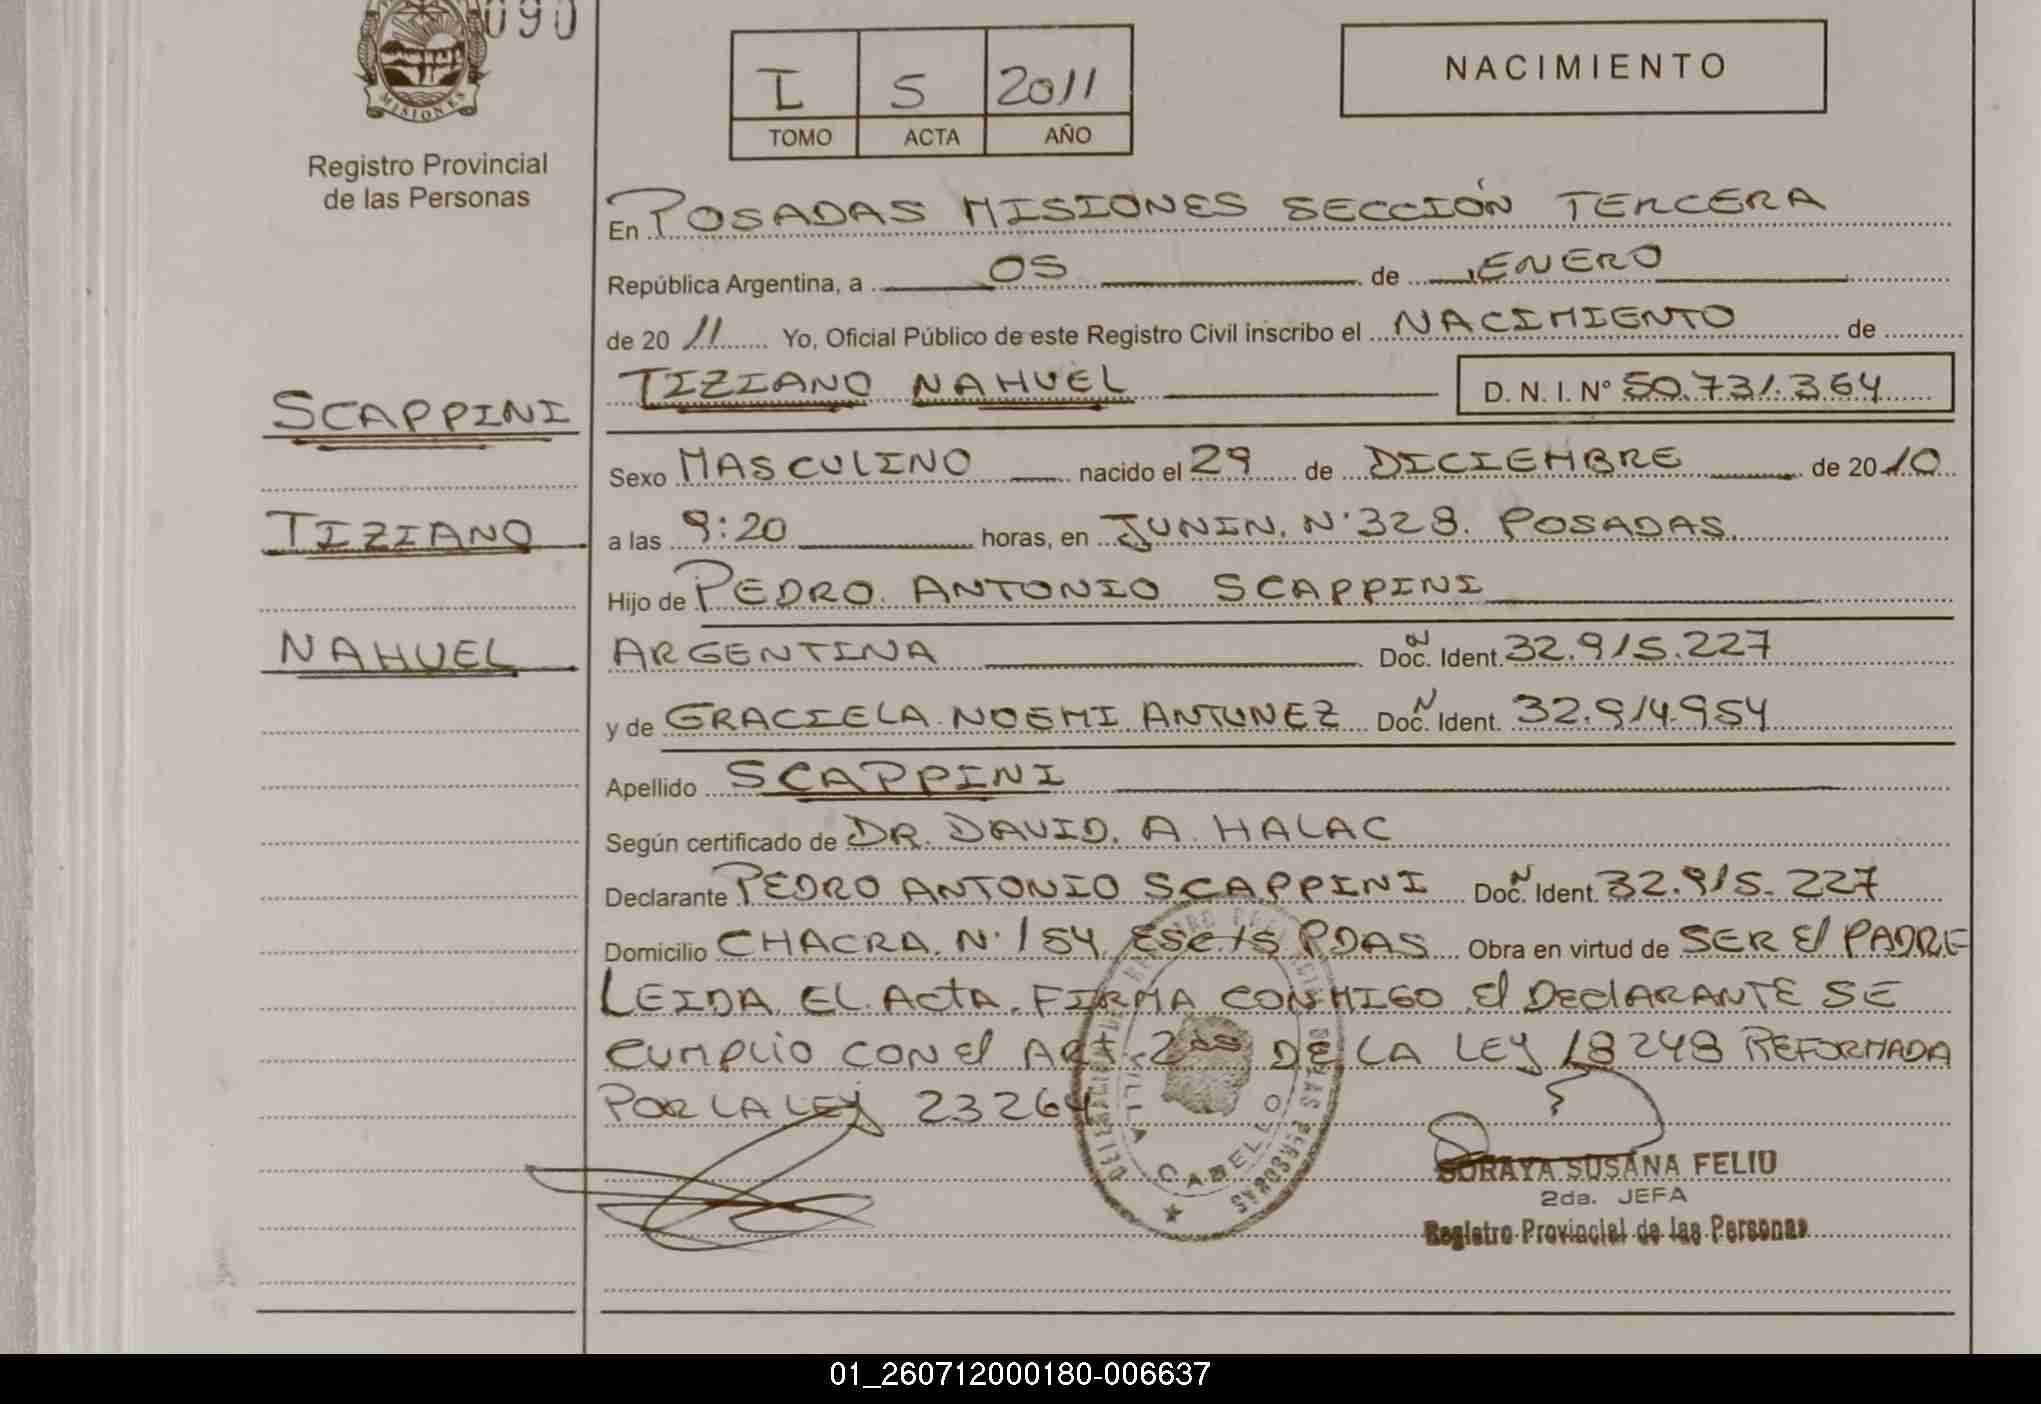 090
MISIONES
Registro Provincial
de las Personas
I S 2011
TOMO ACTA AÑO
NACIMIENTO
En POSADAS MISIONES SECCIÓN TERCERA
República Argentina, a 05 de ENERO
de 20 11 Yo, Oficial Público de este Registro Civil inscribo el NACIMIENTO de
TIZIANO NAHUEL D. N. I. Nº 50.731.364
SCAPPINI
Sexo MASCULINO nacido el 29 de DICIEMBRE de 20 10
TIZIANO
a las 9:20 horas, en JUNIN. Nº 328. POSADAS.
Hijo de PEDRO. ANTONIO SCAPPINI
NAHUEL
ARGENTINA Doc. N Ident. 32.915.227
y de GRACIELA NOEMI ANTUNEZ Doc. N Ident. 32.914.954
Apellido SCAPPINI
Según certificado de DR. DAVID. A. HALAC
Declarante PEDRO ANTONIO SCAPPINI Doc. N Ident. 32.915.227
Domicilio CHACRA. Nº 154 ESC 15 PDAS Obra en virtud de SER El PADRE
LEIDA EL ActA. FIRMA CONMIGO El DEClARANTE SE
CUMPLIO CON El ARt 2do DE LA LEY 18248 REFORMADA
POR LA LEY 23264
DELEGACION DE REGISTRO PROVINCIAL DE LAS PERSONAS
VILLA CABELLO
SORAYA SUSANA FELIU
2da. JEFA
Registro Provincial de las Personas
01_260712000180-006637